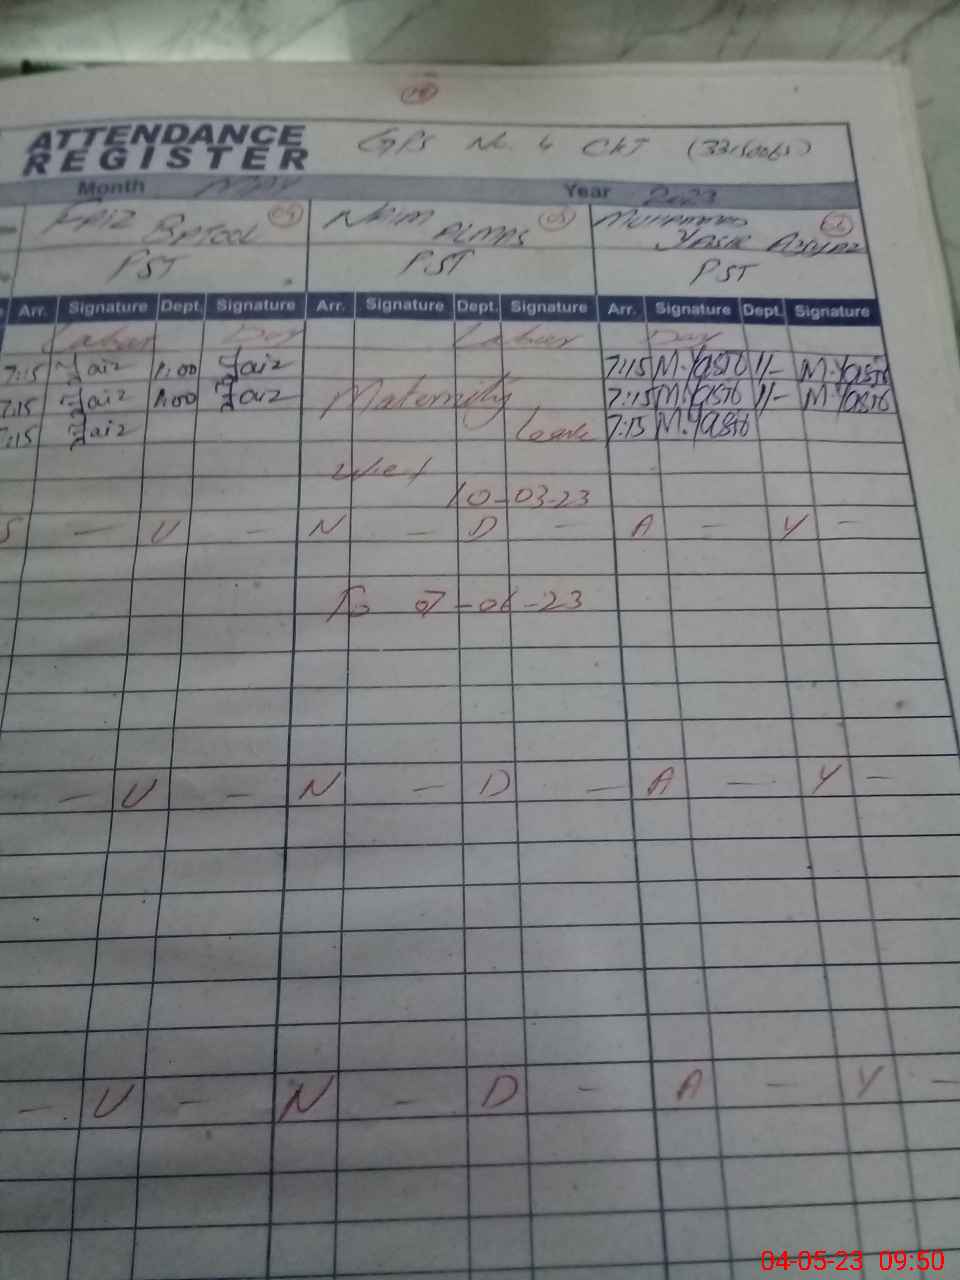 ATTENDANCE
REGISTER
GPS No. 4 CKT
Month May Year 2023
Faiz Batool 04 Naim 05 Muhammad 06
Yasir
PST PST PST
Arr. Signature Dept. Signature Arr. Signature Dept. Signature Arr. Signature Dept. Signature
Labour Day Labour Day
7:15 Faiz 1:00 Faiz 7:15 M.Yasir 1/- M.Yasir
7:15 Faiz 1:00 Faiz Maternity 7:15 M.Yasir 1/- M.Yasir
7:15 Faiz Leave 7:15 M.Yasir
w.e.f
10-03-23
S - U - N - D - A - Y -
To 07-06-23
- U - N - D - A - Y -
- U - N - D - A - Y -
04-05-23 09:50